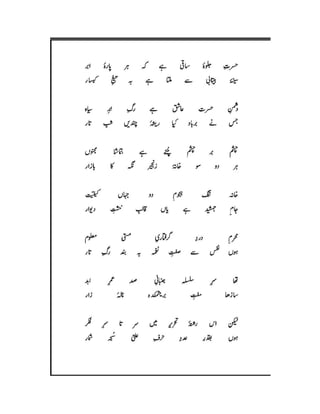 حسرتِ جلوۂ ساقی ہے کہ ہر پارۂ ابر
سینہ بیتابی سے ملتا ہے بہ تیغِ کہسار
دشمنِ حسرتِ عاشق ہے رگِ ابرِ سیاہ
جس نے برباد کیا ریشۂ چندیں شبِ تار
چشم بر چشم چنے ہے بتماشا مجنوں
ہر دو سو خانۂ زنجیر نگہ کا بازار
خانہ تنگ ہجوم دو جہاں کیفیّت
جامِ جمشید ہے یاں قالبِ خشتِ دیوار
محرمِ دردِ گرفتاریِ مستی معلوم
ہوں نفس سے صفتِ نغمہ بہ بندِ رگِ تار
تھا سرِ سلسلہ جنبانیِ صد عمرِ ابد
سازھا مفتِ بریشمکدۂ نالۂ زار
لیکن اس رشتۂ تحریر میں سر تا سرِ فکر
ہوں بقدرِ عددِ حرفِ علیؑ سبحہ شمار